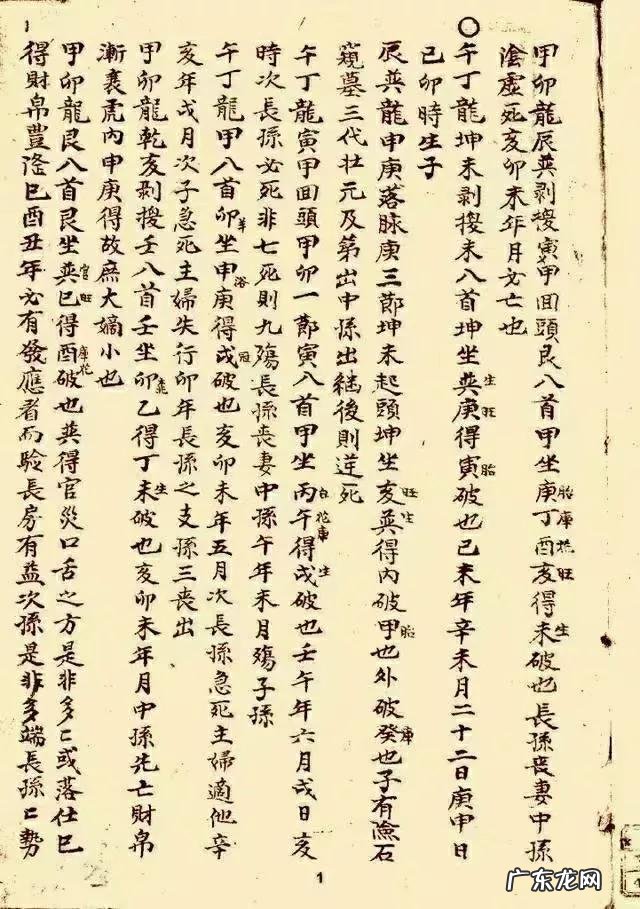 甲卯龍辰巽剥換寅甲回頭艮八首甲坐庚丁酉亥得未破也長孫喪妻中孫
胎庫花旺生
陰虛死亥卯未年月必亡也
午丁龍坤未剥換未八首坤坐巽庚得寅破也己未年辛未月二十二日庚申日
生旺胎
己卯時生子
辰巽龍申庚落脉庚三節坤未起頭坤坐亥巽得內破甲也外破癸也子有險石
旺生胎庫
窺墓三代壮元及第出中孫出継後則逆死
午丁龍寅甲回頭甲卯一節寅八首甲坐丙午得戌破也壬午年六月戌日亥
花庫生
時次長孫必死非七死則九殤長孫喪妻中孫午年未月殤子孫
午丁龍甲八首卯坐申庚得戌破也亥卯未年五月次長孫急死主婦適他辛
浴冠
亥年戌月次子急死主婦失行卯年長孫之支孫三喪出
甲卯龍乾亥剥換壬八首壬坐卯乙得丁未破也亥卯未年月中孫先亡財帛
生
漸衰虎內申庚得故庶大嫡小也
甲卯龍艮八首艮坐巽巳得酉破也巽得官災口舌之方是非多〻或落仕巳
官旺庫花
得財帛豊隆巳酉丑年必有發應者而驗長房有益次孫是非多端長孫〻勢
1
广东龙网